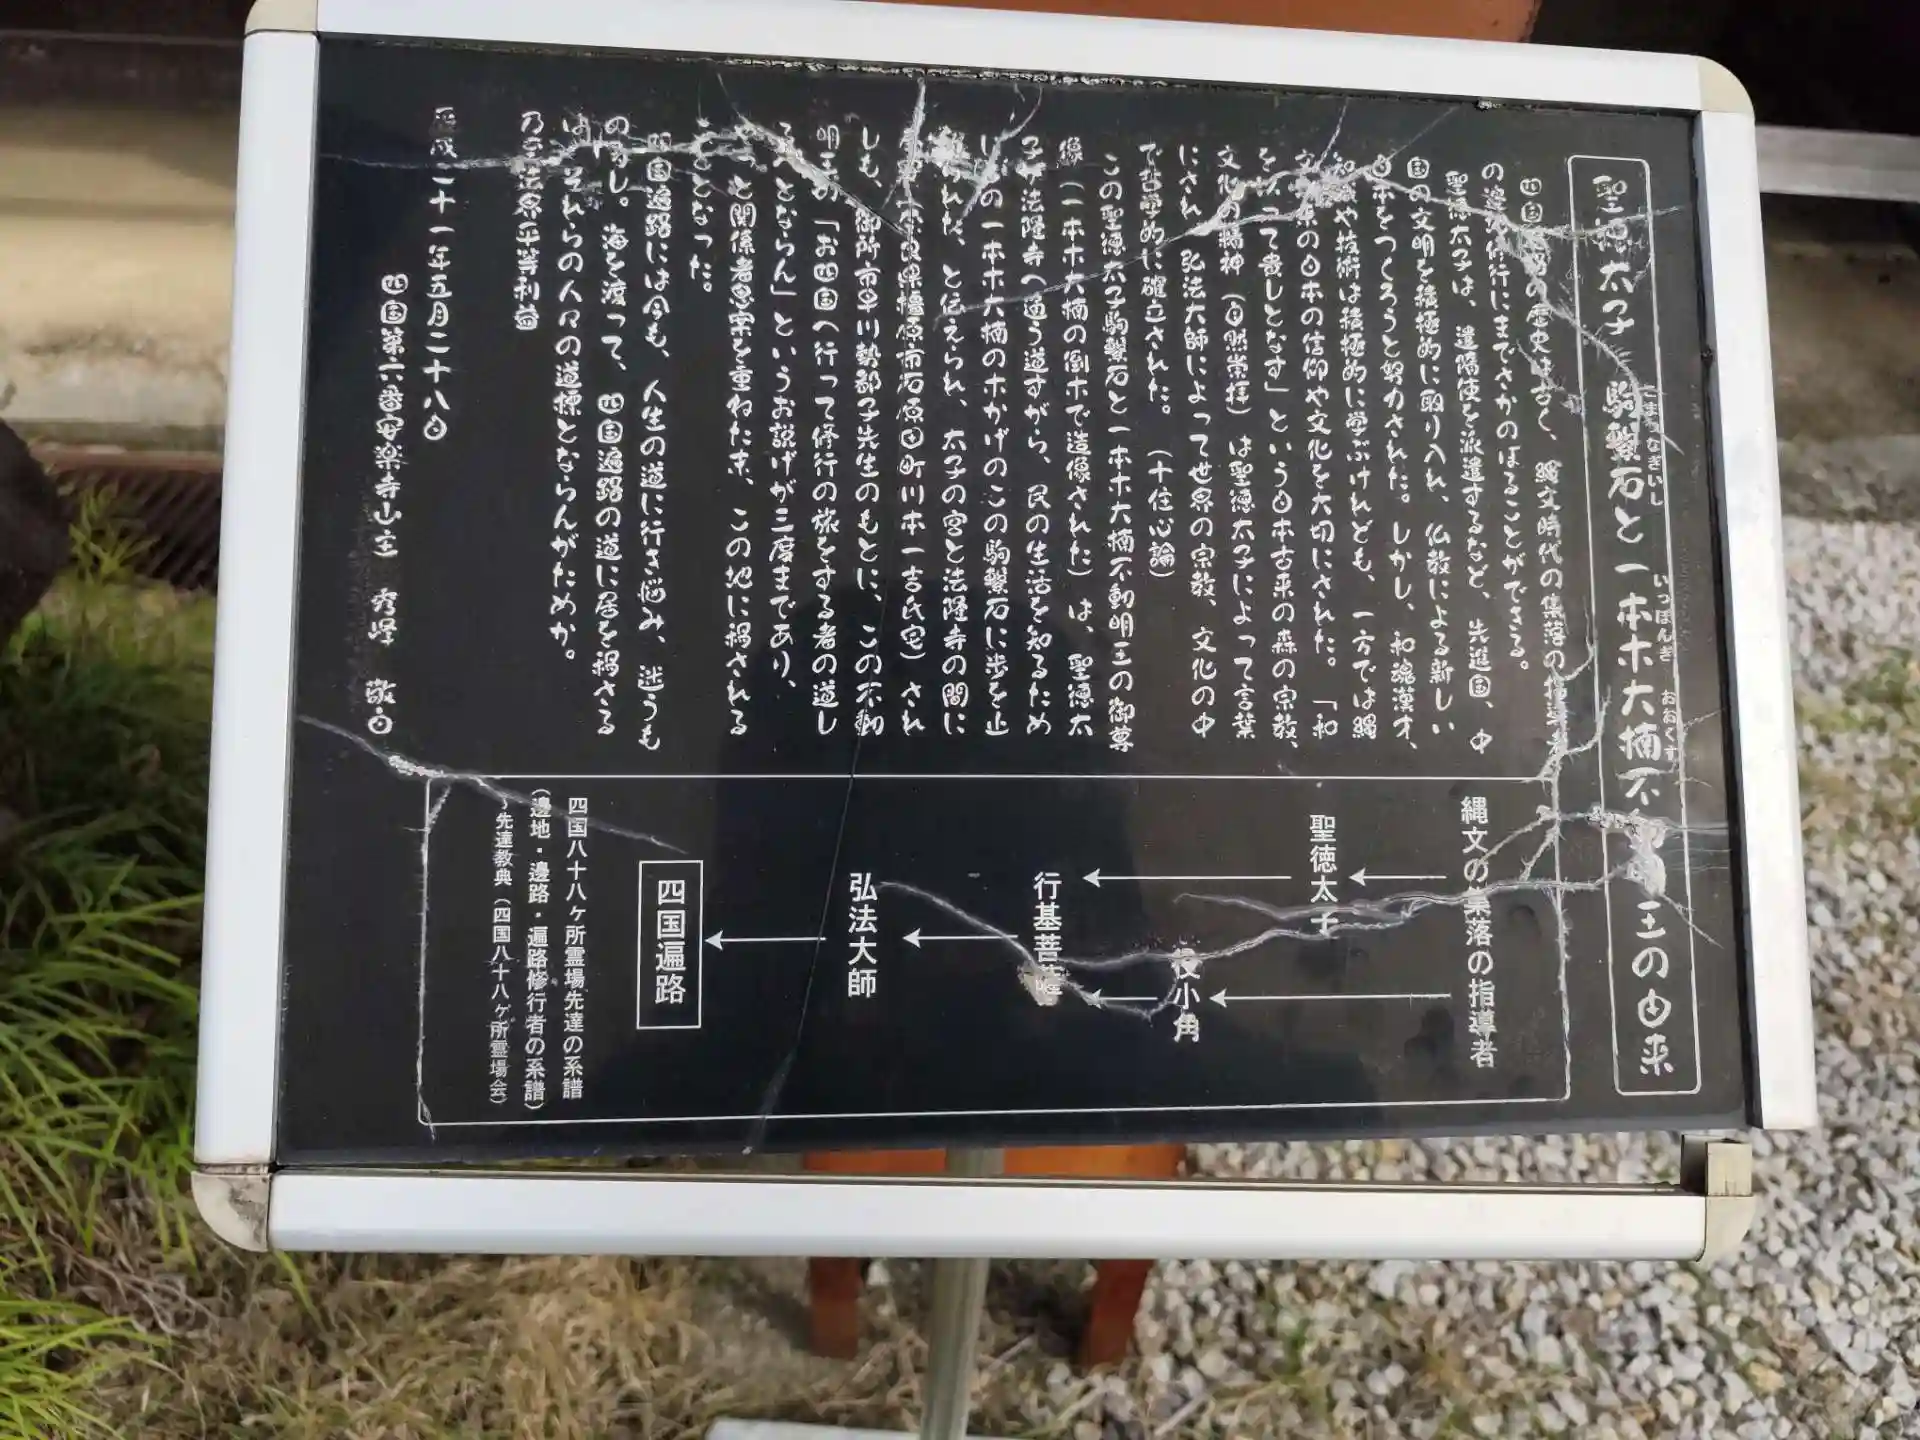 聖徳太子 駒繫石と一本木大楠不動明王の由来
こまつなぎいし
いっぽんぎ
おおくす
四国遍路の歴史は古く、縄文時代の集落の指導者
の邊地修行にまでさかのぼることができる。
聖徳太子は、遣隋使を派遣するなど、先進国、中
国の文明を積極的に取り入れ、仏教による新しい
日本をつくろうと努力された。しかし、和魂漢才、
知識や技術は積極的に学ぶけれども、一方では縄
文以来の日本の信仰や文化を大切にされた。「和
を以って貴しとなす」という日本古来の森の宗教、
文化の精神(自然崇拝)は聖徳太子によって言葉
にされ、弘法大師によって世界の宗教、文化の中
で哲学的に確立された。(十住心論)
この聖徳太子駒繫石と一本木大楠不動明王の御尊
像(一本木大楠の倒木で造像された)は、聖徳太
子が法隆寺へ通う道すがら、民の生活を知るため
いの一本木大楠の木かげのこの駒繫石に歩を止
められた、と伝えられ、太子の宮と法隆寺の間に
奈良県橿原市石原田町川本一吉氏宅)され
しも、御所市早川勢都子先生のもとに、この不動
明王の「お四国へ行って修行の旅をする者の道し
るべとならん」というお説げが三度まであり、
と関係者思案を重ねた末、この地に祠される
こととなった。
四国遍路には今も、人生の道に行き悩み、迷うも
の多し。海を渡って、四国遍路の道に居を祠さる
は、それらの人々の道標とならんがためか。
乃至法界平等利益
平成二十一年五月二十八日
四国第六番安楽寺山主 秀峰 敬白
縄文の集落の指導者
聖徳太子
役小角
行基菩薩
弘法大師
四国遍路
四国八十八ヶ所霊場先達の系譜
(邊地・邊路・遍路修行者の系譜)
~先達教典(四国八十八ヶ所霊場会)